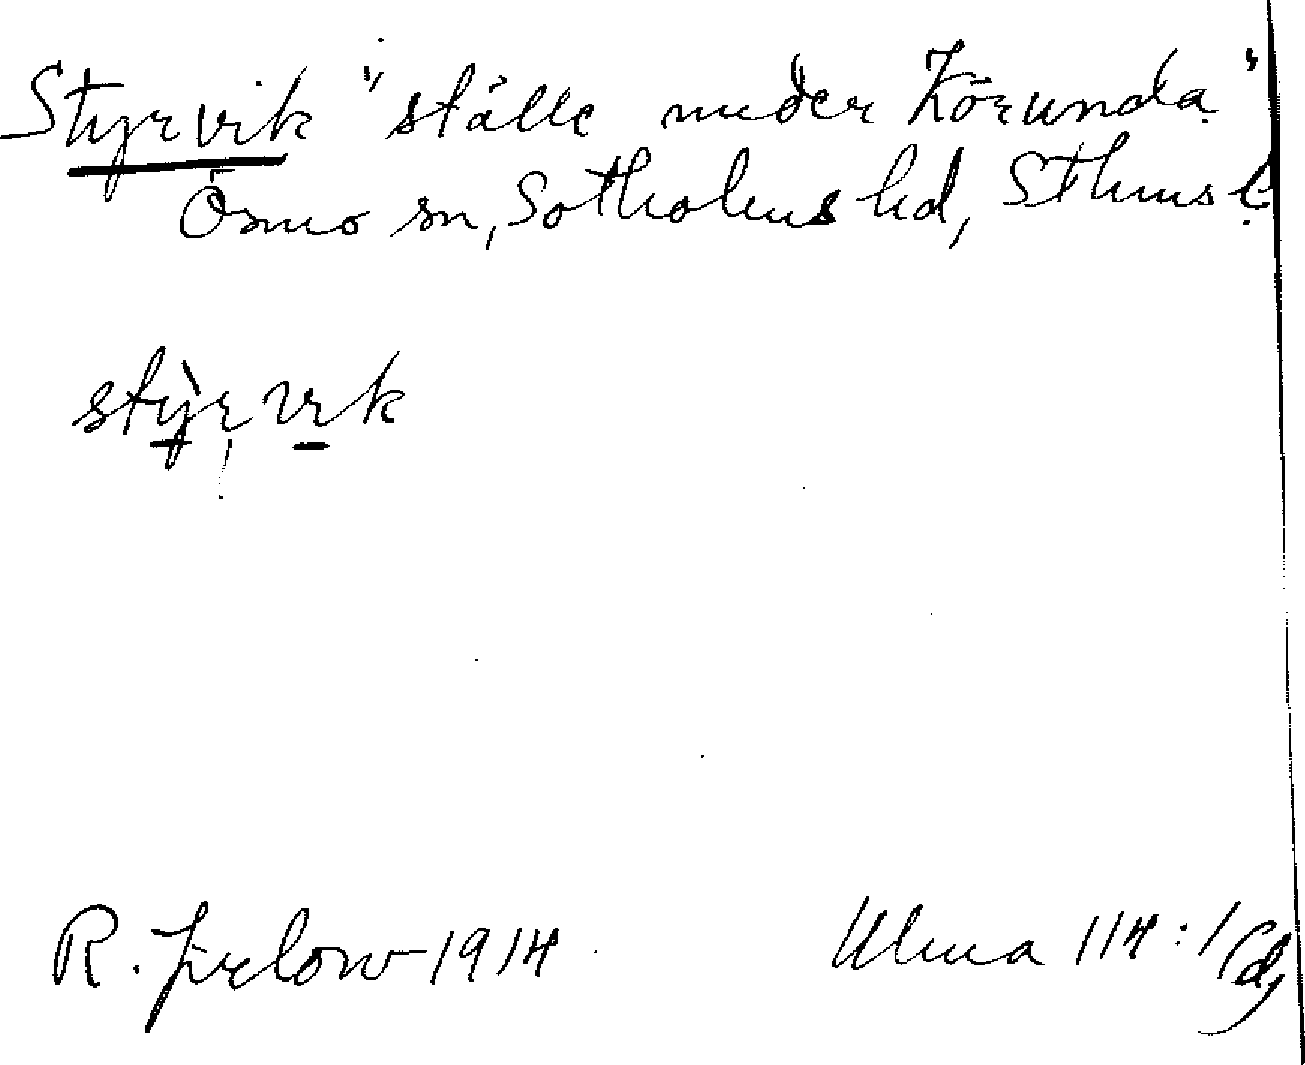 Styrvik "ställe under Körunda"
Ösmo sn, Sotholms hd, Sthms l.
stỳr,vik
R. Jirlow 1914 Ulma 114:1(d)